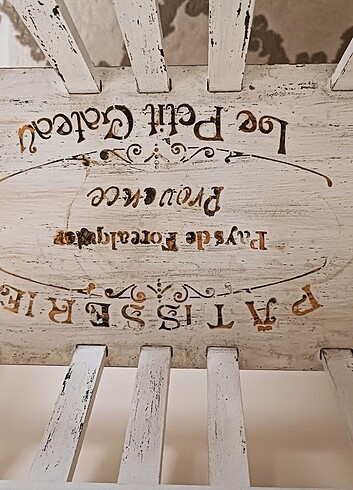 PÂTISSERIE
Pays de Forcalquier
Provence
Le Petit Gateau